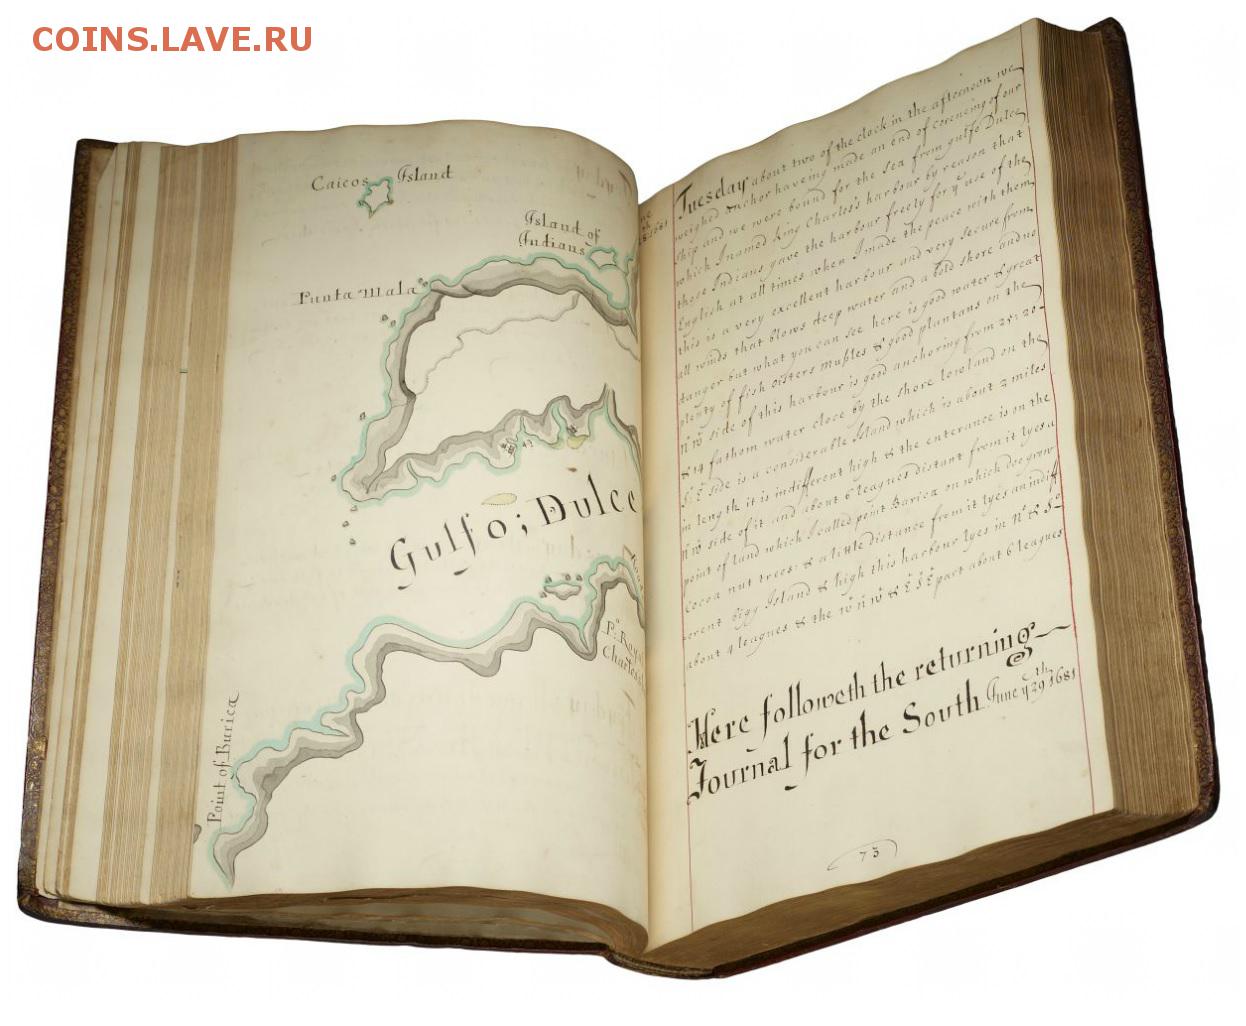 COINS.LAVE.RU
Caicos Island
Island of
Indians
Punta Mala
Gulfo; Dulce
Point of Burica
P.º Roya
Charles
1681
Tuesday about two of the clock in the afternoon we
weighed anchor haveing made an end of coreneing of our
ship and we were bound for the sea from gulfo Dulce
which I named King Charles's harbour by reason that
those Indians gave the harbour freely for yᵉ use of the
English at all times when I made the peace with them
this is a very excellent harbour and very secure from
all winds that blows deep water and a bold shore and no
danger but what you can see here is good water & great
plenty of fish oisters mussles & good plantans on the
Nº Wº side of this harbour is good anchoring from 25: 20-
& 14 fathom water close by the shore lowland on the
S: E side is a considerable Island which is about 2 miles
in length it is indifferent high & the enterance is on the
Nº Wº side of it and about 6 leagues distant from it lyes a
point of land which I called point Barica on which doe grow
Cocoa nut trees: & a little distance from it lyes an indiff
erent bigg Island & high this harbour lyes in Nº & Sº
about 4 leagues & the part about 6 leagues
Here followeth the returning
Journal for the South June yᵉ 29th 1681
73